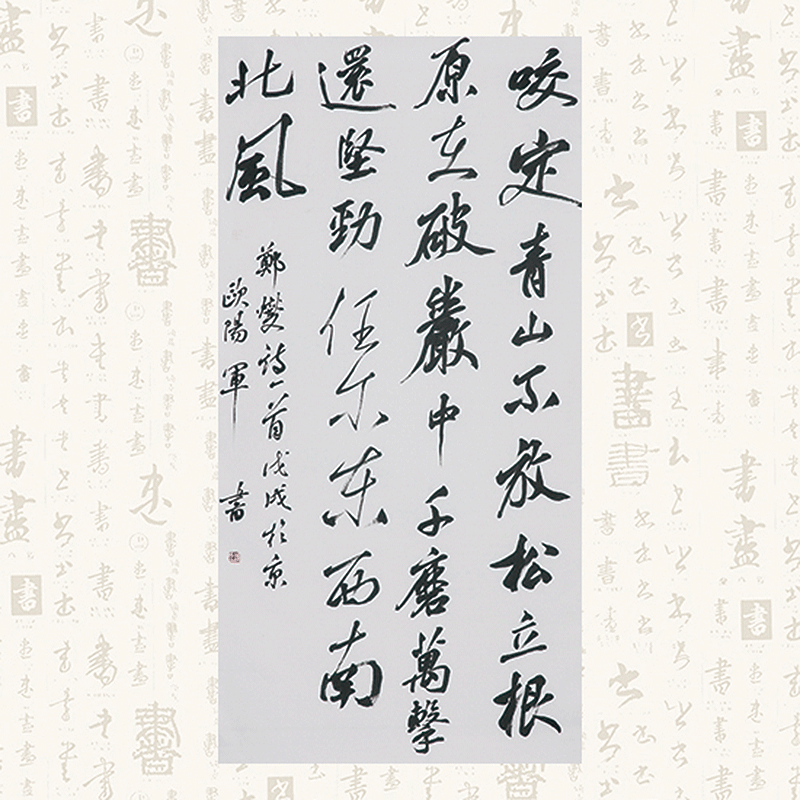 咬定青山不放松立根
原在破巖中千磨萬擊
還堅勁任尔东西南
北風
鄭燮诗一首戊戌於京
歐陽軍書